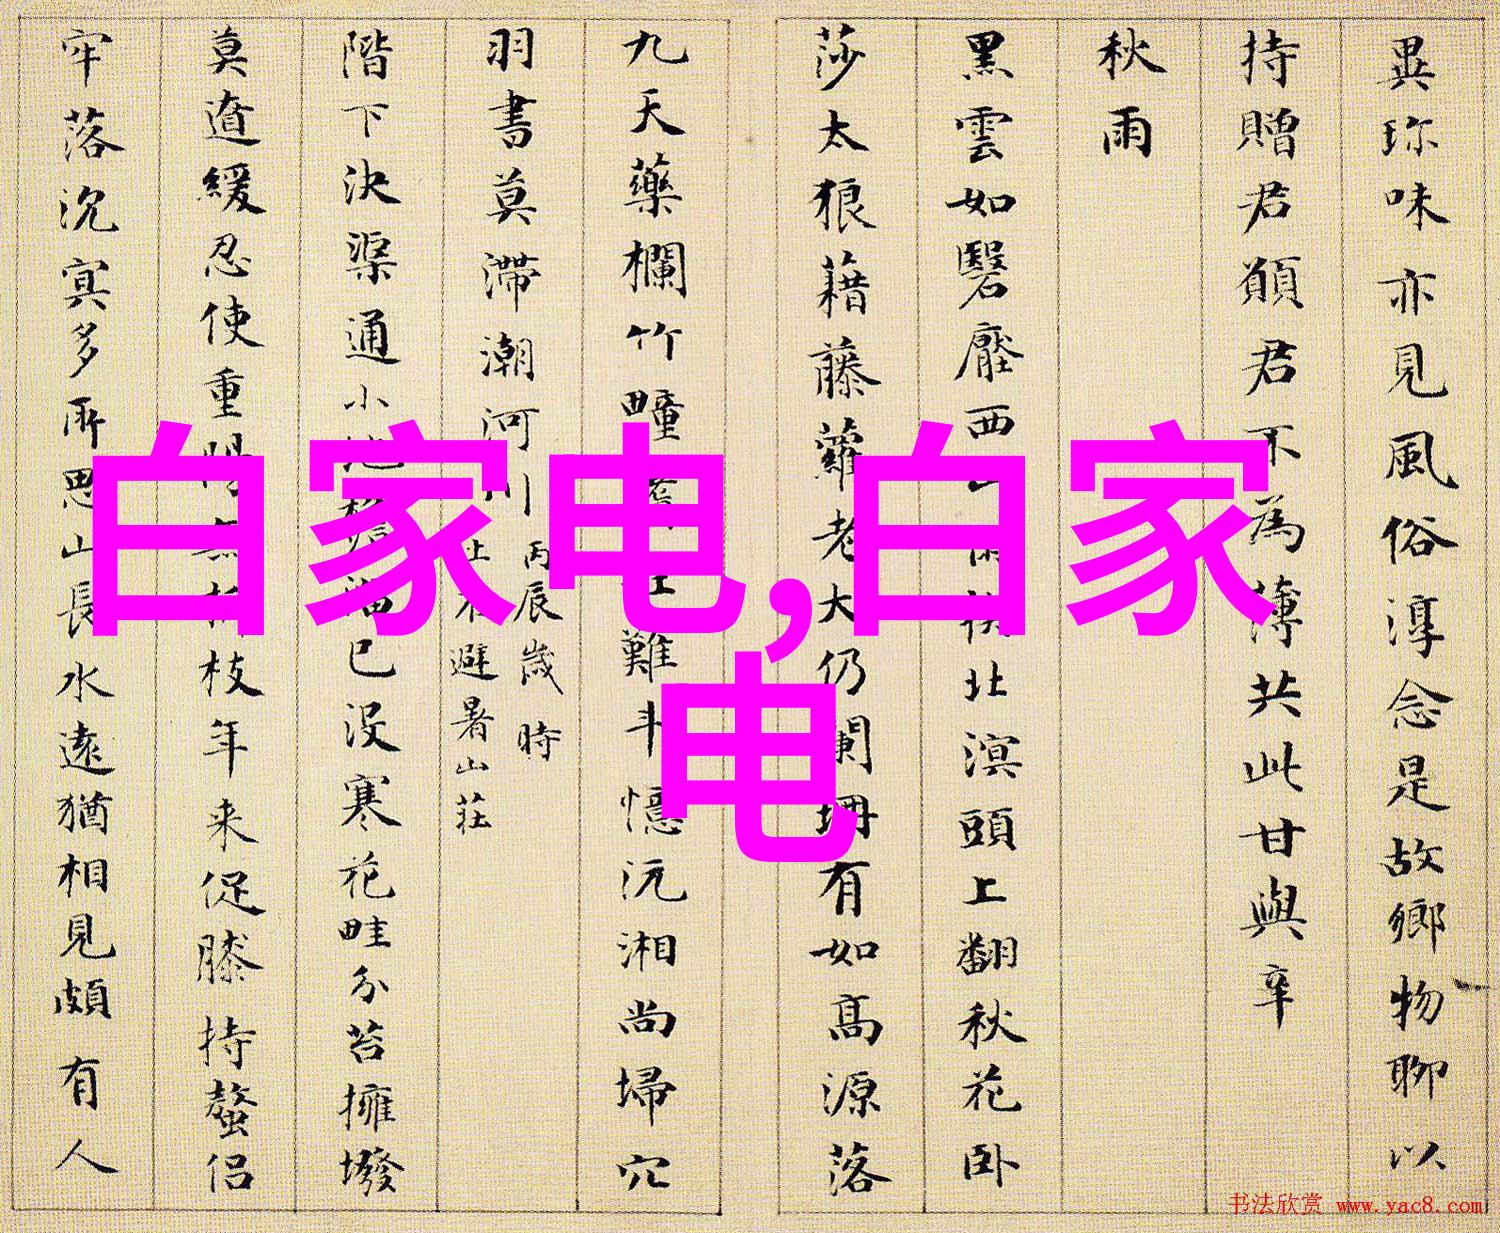 異珎味亦見風俗淳念是故鄉物聊以
持贈君願君不為薄共此甘與辛
秋雨
黑雲如翳壓西北溟頭上翻秋花卧
莎太狼藉藤蘿老大仍闌珊有如高源落
九天藥欄竹疃難斗憶沅湘尚埽穴
羽書莫滯潮河川丙辰歲時
上在避暑山莊
階下決渠通小池已没寒花畦分苔擁墢
莫遒緩忍使重陽枝年来促膝持螯侣
牢落沉冥多所思山長水遠猶相見頗有人
白家电,白家
电
书法欣赏 www.yac8.com